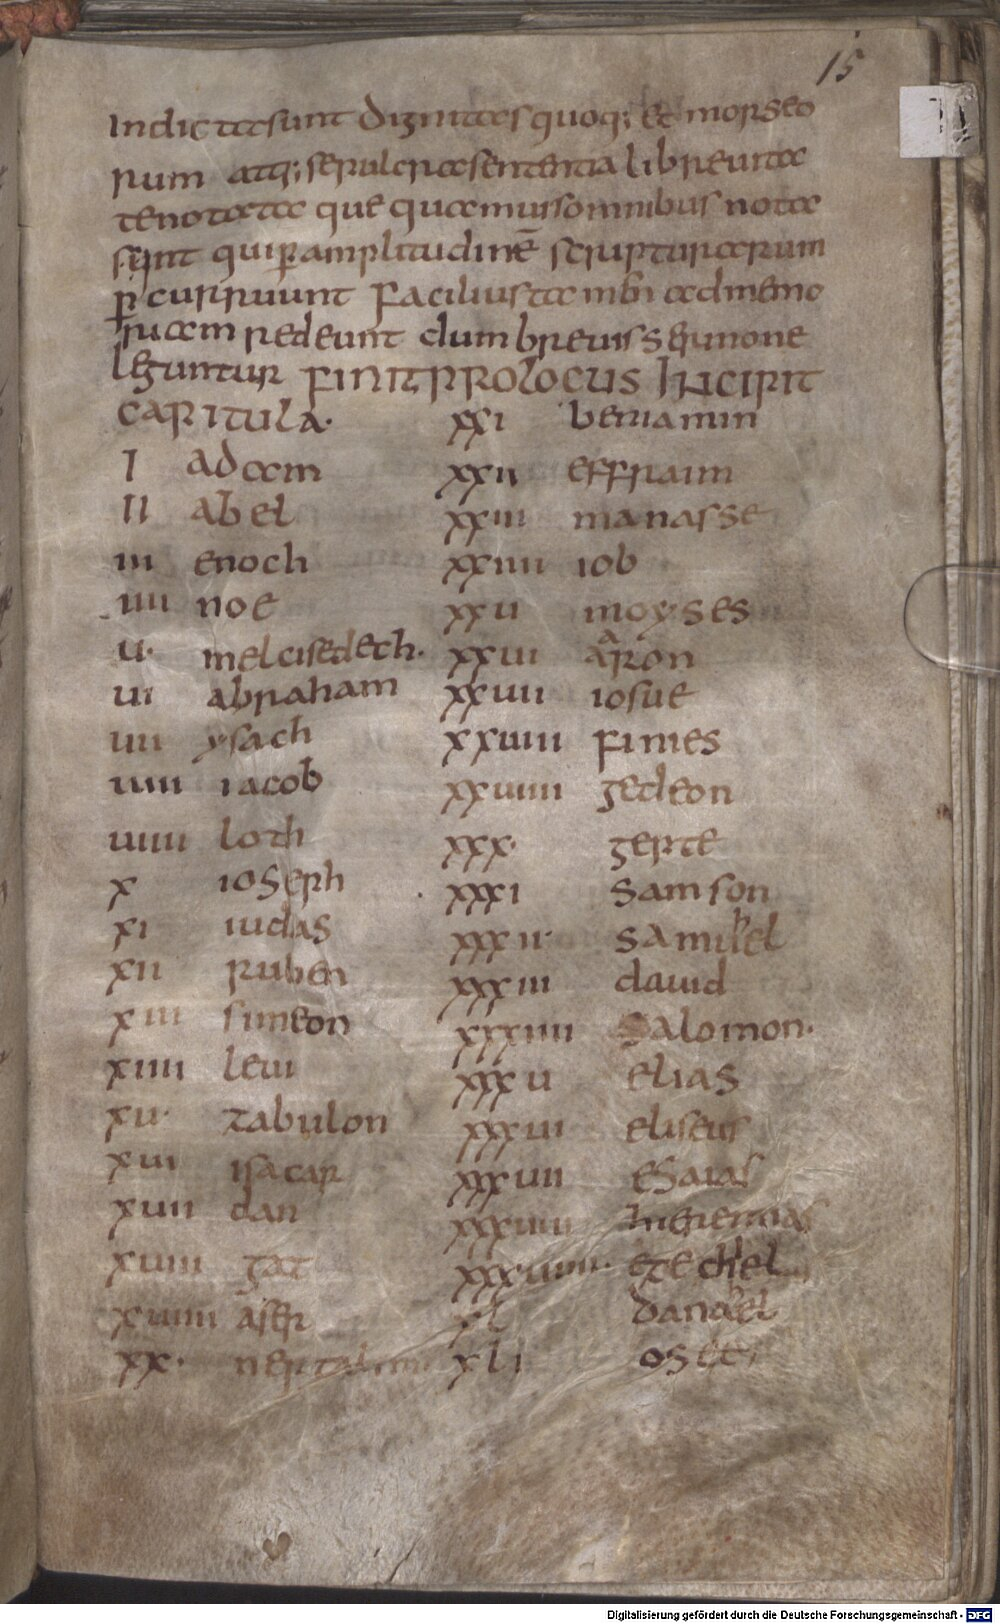 15
Indic tae sunt dignitates quoq; et mors eo
rum atq; sepulcra sententia li breuita
te notata que quamuis omnibus nota
sunt qui p amplitudinē scripturarum
p currunt facilius ta mn ad memo
riam redeunt dum breui sermone
leguntur finit prolocus Incipit
capitula·
I adam
II abel
iii enoch
iiii noe
u· melcisedech·
ui abraham
uii ysach
uiii iacob
uiiii loth
x ioseph
xi iudas
xii ruben
xiii simeon
xiiii leui
xu· zabulon
xui isacar
xuii dan
xuiii gat
xuiiii aser
xx· neptalim·
xxi beniamin
xxii effraim
xxiii manasse
xxiiii iob
xxu moyses
xxui aaron
xxuii iosue
xxuiii fines
xxuiiii gedeon
xxx· gepte
xxxi samson
xxxii· samuhel
xxxiii dauid
xxxiiii salomon·
xxxu elias
xxxui eliseus
xxxuii esaias
xxxuiii hieremias
xxxuiiii· ezechihel
xl danihel
xli osee
Digitalisierung gefördert durch die Deutsche Forschungsgemeinschaft - DFG